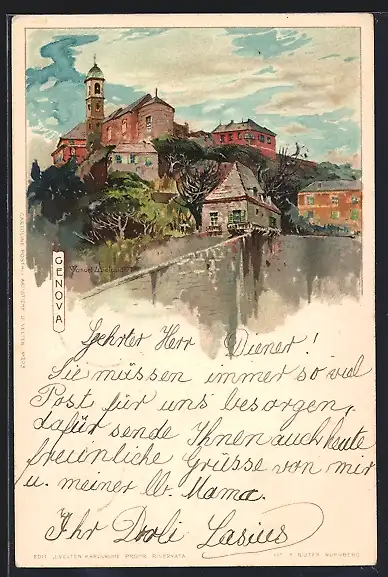 GENOVA
Manuel Wielandt
Geehrter Herr Diener!
Sie müssen immer so viel
Post für uns besorgen,
dafür sende Ihnen auch heute
freundliche Grüsse von mir
u. meiner lb. Mama.
Ihr Dooli Lasius
EDIT. J. VELTEN KARLSRUHE PROPR. RISERVATA
NÜRNBERG